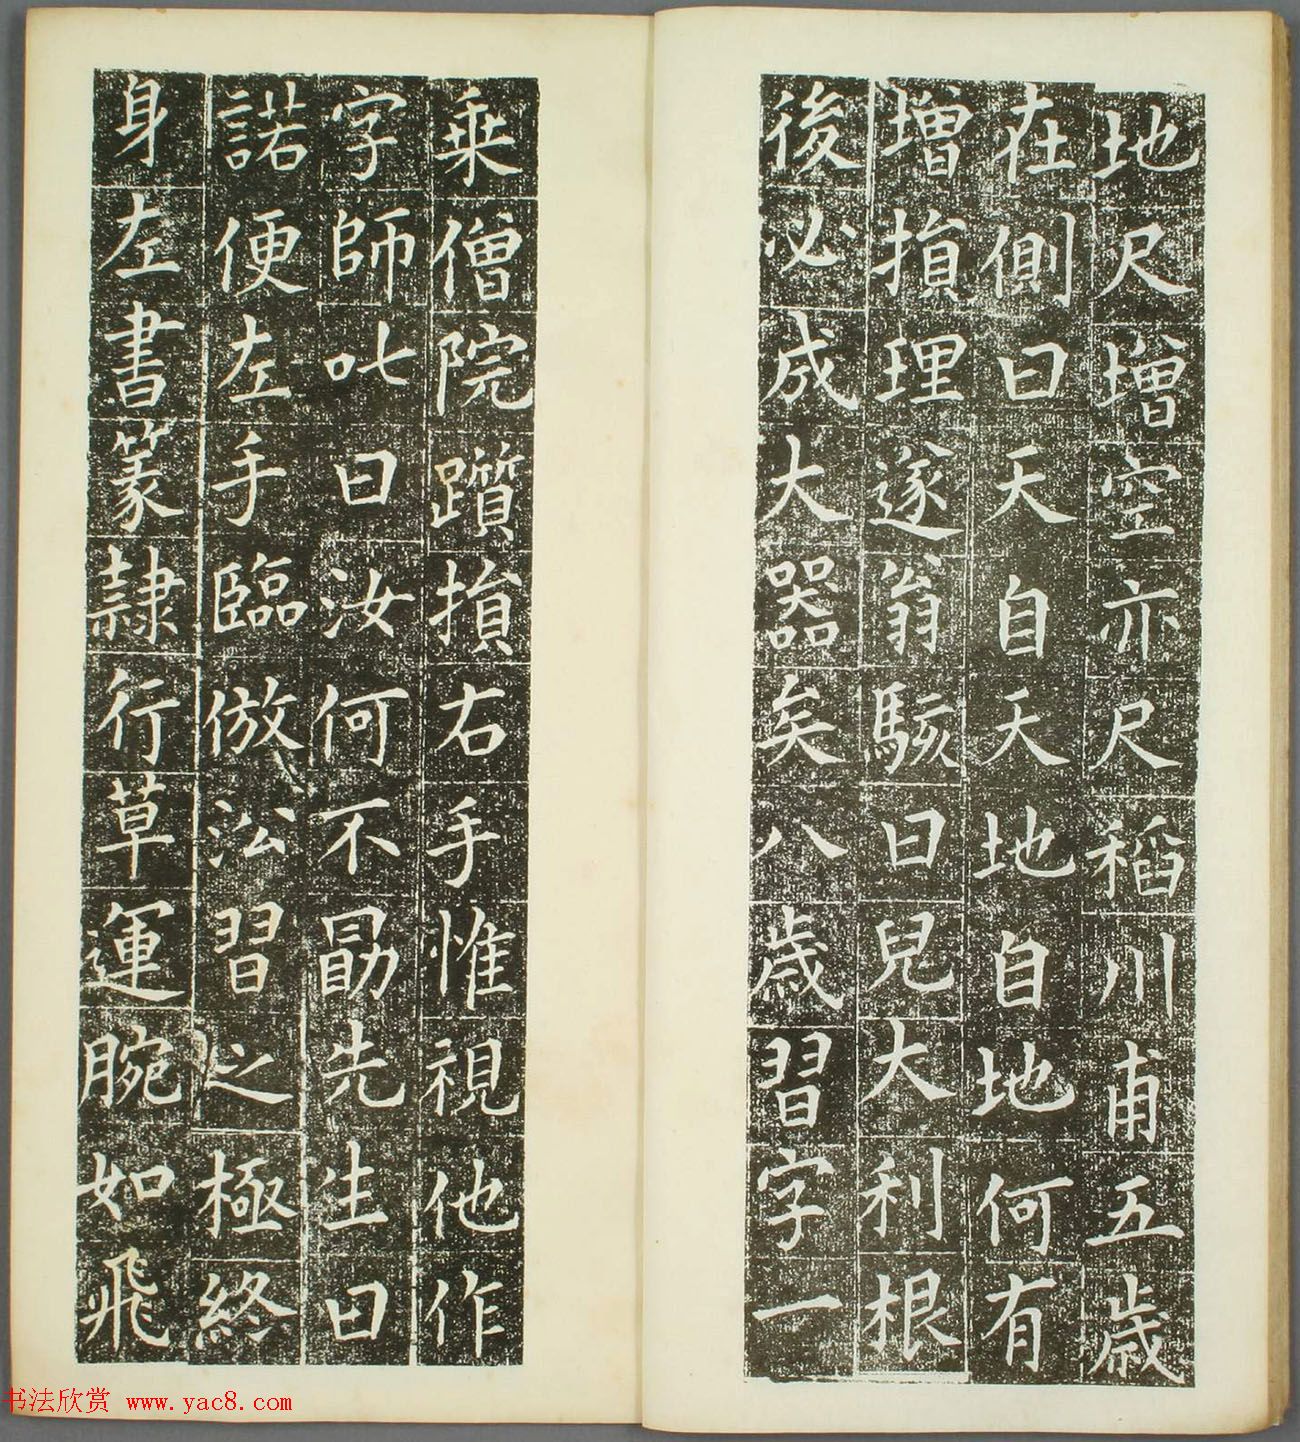 地尺增空亦尺稻川甫五歲
在側曰天自天地自地何有
增損理遂翁駭曰兒大利根
後必成大器矣八歲習字一
乘僧院躓損右手惟視他作
字師叱曰汝何不勗先生曰
諾便左手臨倣㳂習之極終
身左書篆隷行草運腕如飛
书法欣赏 www.yac8.com